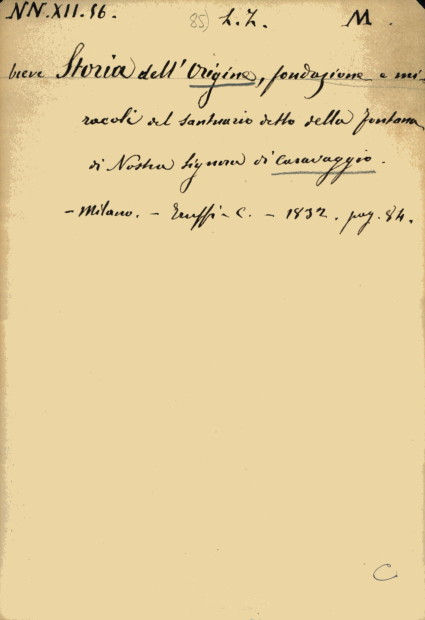 NN.XII.56. 85) L.Z. M.
breve Storia dell'Origine, fondazione e mi-
racoli del santuario detto della fontana
di Nostra Signora di Caravaggio.
- Milano. - Truffi - C. - 1832. pag. 84.
C